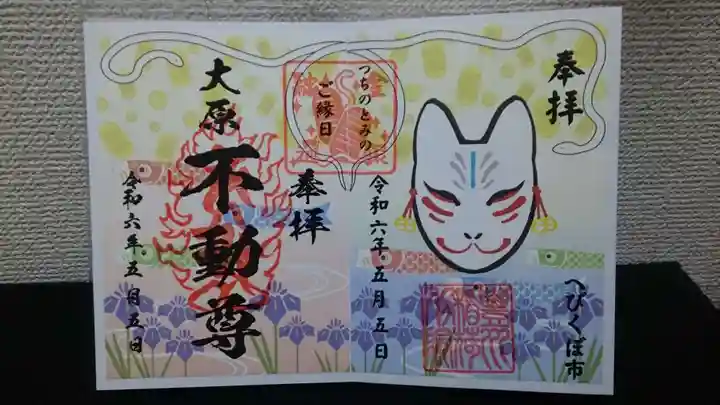 奉拝
へびくぼ市
令和六年五月五日
つちのとみの
ご縁日
奉拝
大原
不動尊
令和六年五月五日